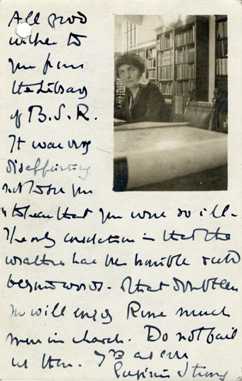 All good
wishes to
you from
the Library
of B.S.R.
It was very
disappointing
not to see you
& to hear that you were so ill.
The only consolation is that the
weather has been horrible &
beyond words.
you will enjoy Rome much
more in March. Do not fail
us then. Yrs as ever
Eugénie Strong